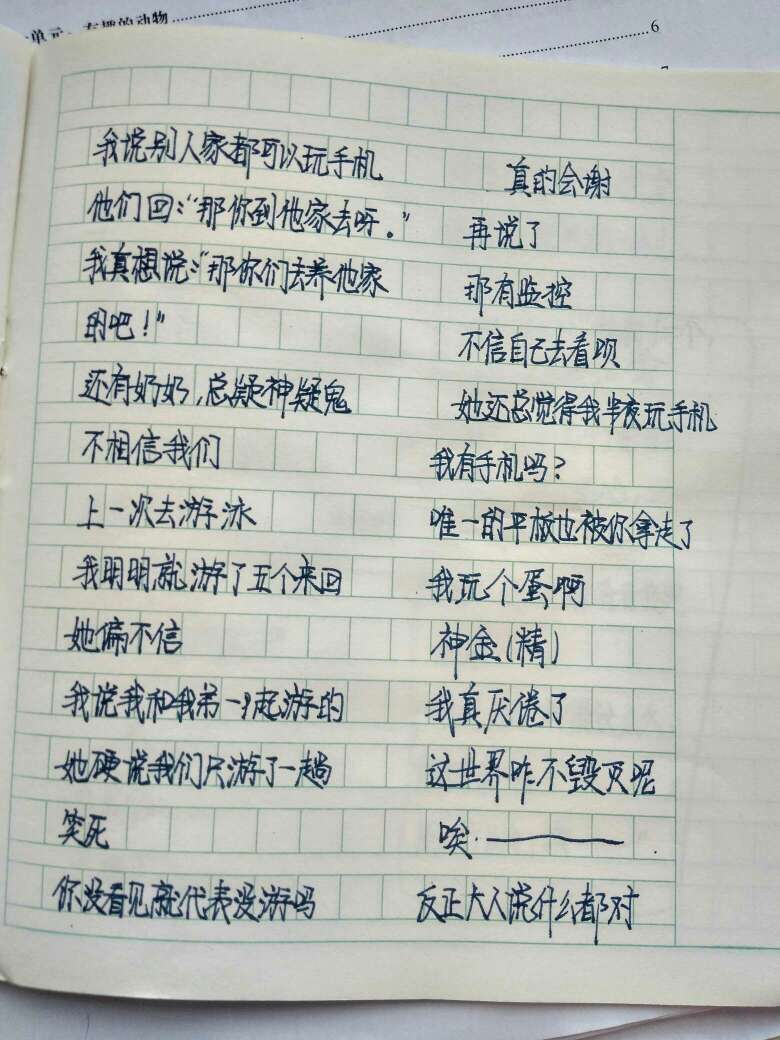 单元 有趣的动物……6
我说别人家都可以玩手机
他们回:“那你到他家去呀。”
我真想说:“那你们去养他家
的吧!”
还有奶奶,总疑神疑鬼
不相信我们
上一次去游泳
我明明就游了五个来回
她偏不信
我说我和我弟一起游的
她硬说我们只游了一趟
笑死
你没看见就代表没游吗
真的会谢
再说了
那有监控
不信自己去看呗
她还总觉得我半夜玩手机
我有手机吗?
唯一的平板也被你拿走了
我玩个蛋啊
神金(精)
我真厌倦了
这世界咋不毁灭呢
唉.——
反正大人说什么都对